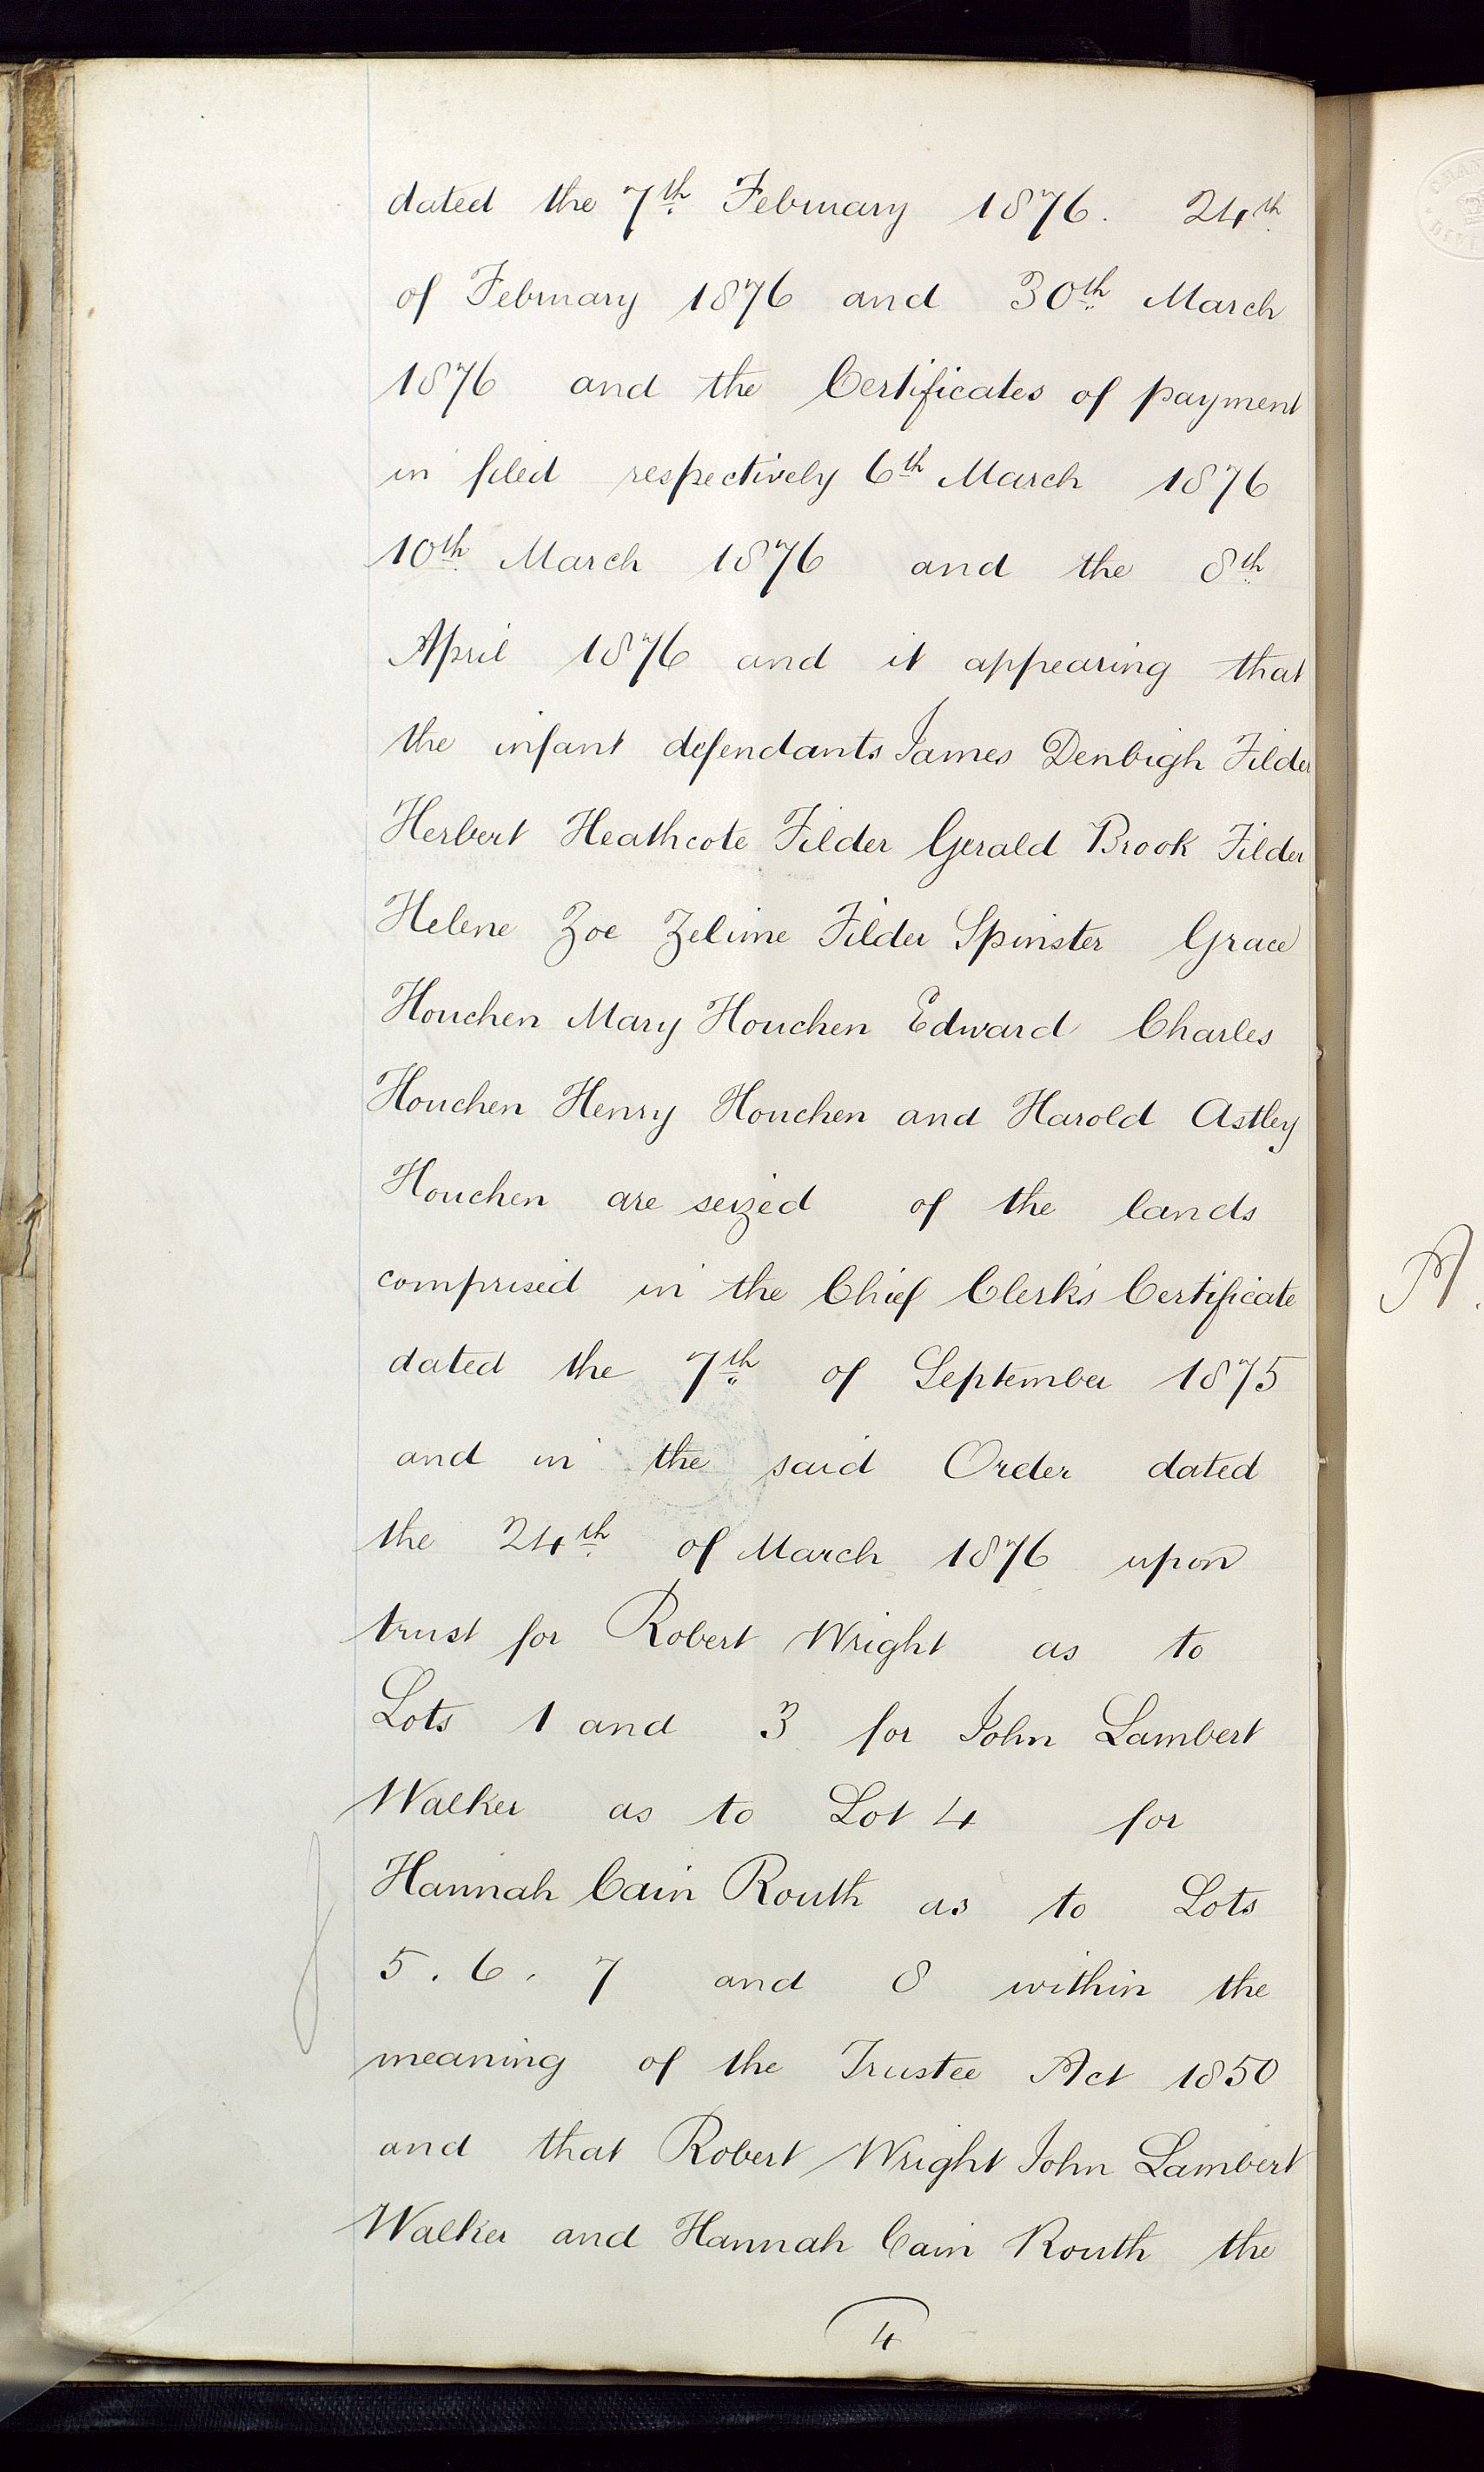 dated the 7th February 1876. 24th
of February 1876 and 30th March
1876 and the Certificates of payment
in filed respectively 6th March 1876
10th March 1876 and the 8th
April 1876 and it appearing that
the infant defendants James Denbigh Filder
Herbert Heathcote Filder Gerald Brook Filder
Helene Zoe Zelime Filder Spinster Grace
Houchen Mary Houchen Edward Charles
Houchen Henry Houchen and Harold Astley
Houchen are seized of the lands
comprised in the Chief Clerk's Certificate
dated the 7th of September 1875
and in the said Order dated
the 24th of March 1876 upon
trust for Robert Wright as to
Lots 1 and 3 for John Lambert
Walker as to Lot 4 for
Hannah Cain Routh as to Lots
5. 6. 7 and 8 within the
meaning of the Trustee Act 1850
and that Robert Wright John Lambert
Walker and Hannah Cain Routh the
4